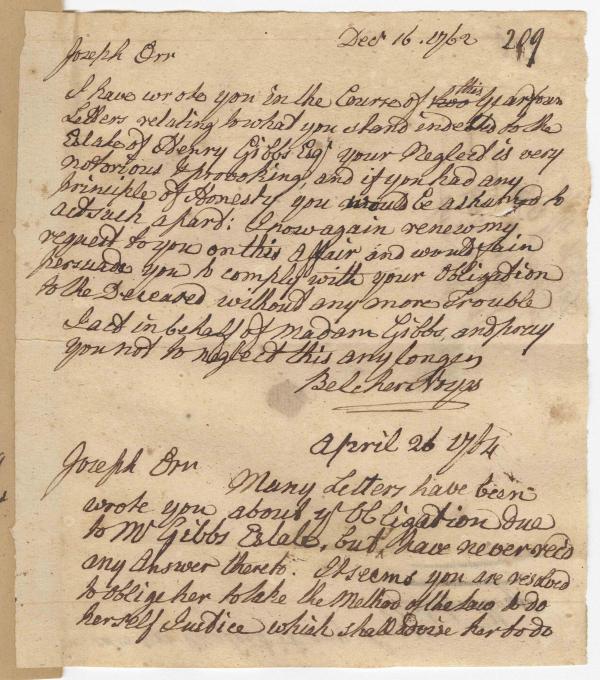 Decr 16. 1762 209
Joseph Orr
I have wrote you in the Course of this year four
Letters relating to what you stand indebted to the
Estate of Henry Gibbs Esqr your Neglect is very
notorious & provoking, and if you had any
principle of Honesty you would be ashamed to
act such a part: I now again renew my
request to you on this affair and would fain
persuade you to comply with your Obligation
to the Deceased without any more Trouble
I act in behalf of Madam Gibbs, and pray
you not to neglect this any longer
Belcher Noyes
April 26 1764
Joseph Orr Many Letters have been
wrote you about yr Obligation due
to Mr Gibbs Estate, but have never rec'd
any Answer thereto. It seems you are resolved
to oblige her to take the Method of the law to do
herself Justice which I shall advise her to do